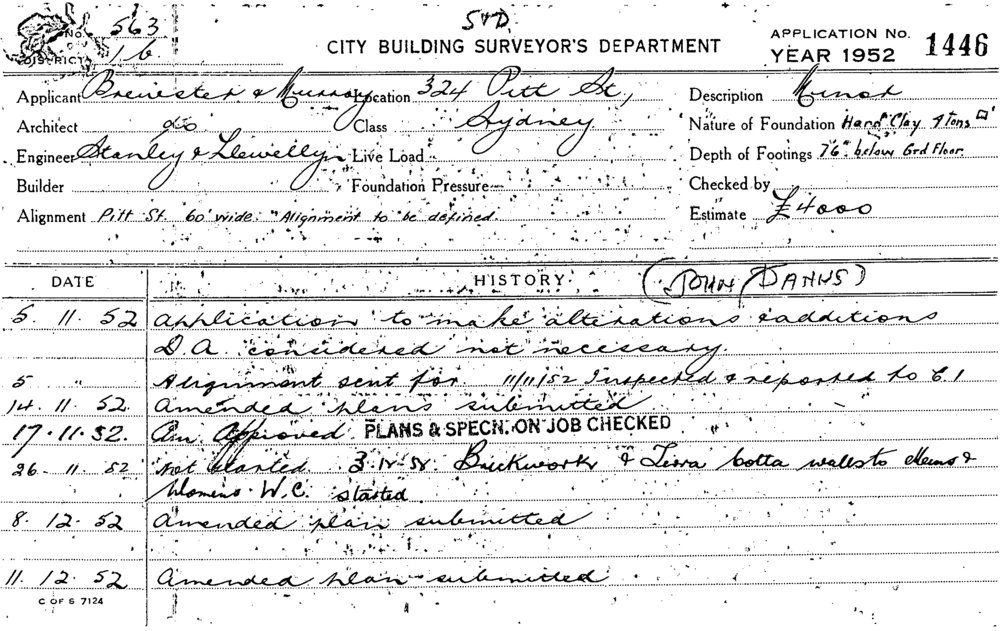 No. 563
DISTRICT 1b
S&D.
CITY BUILDING SURVEYOR'S DEPARTMENT
APPLICATION No.
YEAR 1952 1446
Applicant Brewster & Murray Location 324 Pitt St, Description Minor
Architect do Class Sydney Nature of Foundation Hard Clay 4 tons □'
Engineer Stanley & Llewellyn Live Load Depth of Footings 7'6" below Grd Floor
Builder Foundation Pressure Checked by
Alignment Pitt St 60' wide. "Alignment to be defined Estimate £4000
DATE HISTORY (JOHN DANKS)
5. 11. 52 Application to make alterations & additions
D.A. considered not necessary.
5 " Alignment sent for. 11/11/52 Inspected & reported to C.I
14. 11. 52. Amended plans submitted
17.11.52. Approved PLANS & SPECN. ON JOB CHECKED
26. 11. 52 Not started. 3.12.52. Brickwork & Terra Cotta walls to Mens &
Womens W.C. started.
8. 12. 52 Amended plan submitted
11. 12. 52 Amended plan submitted
C OF S 7124